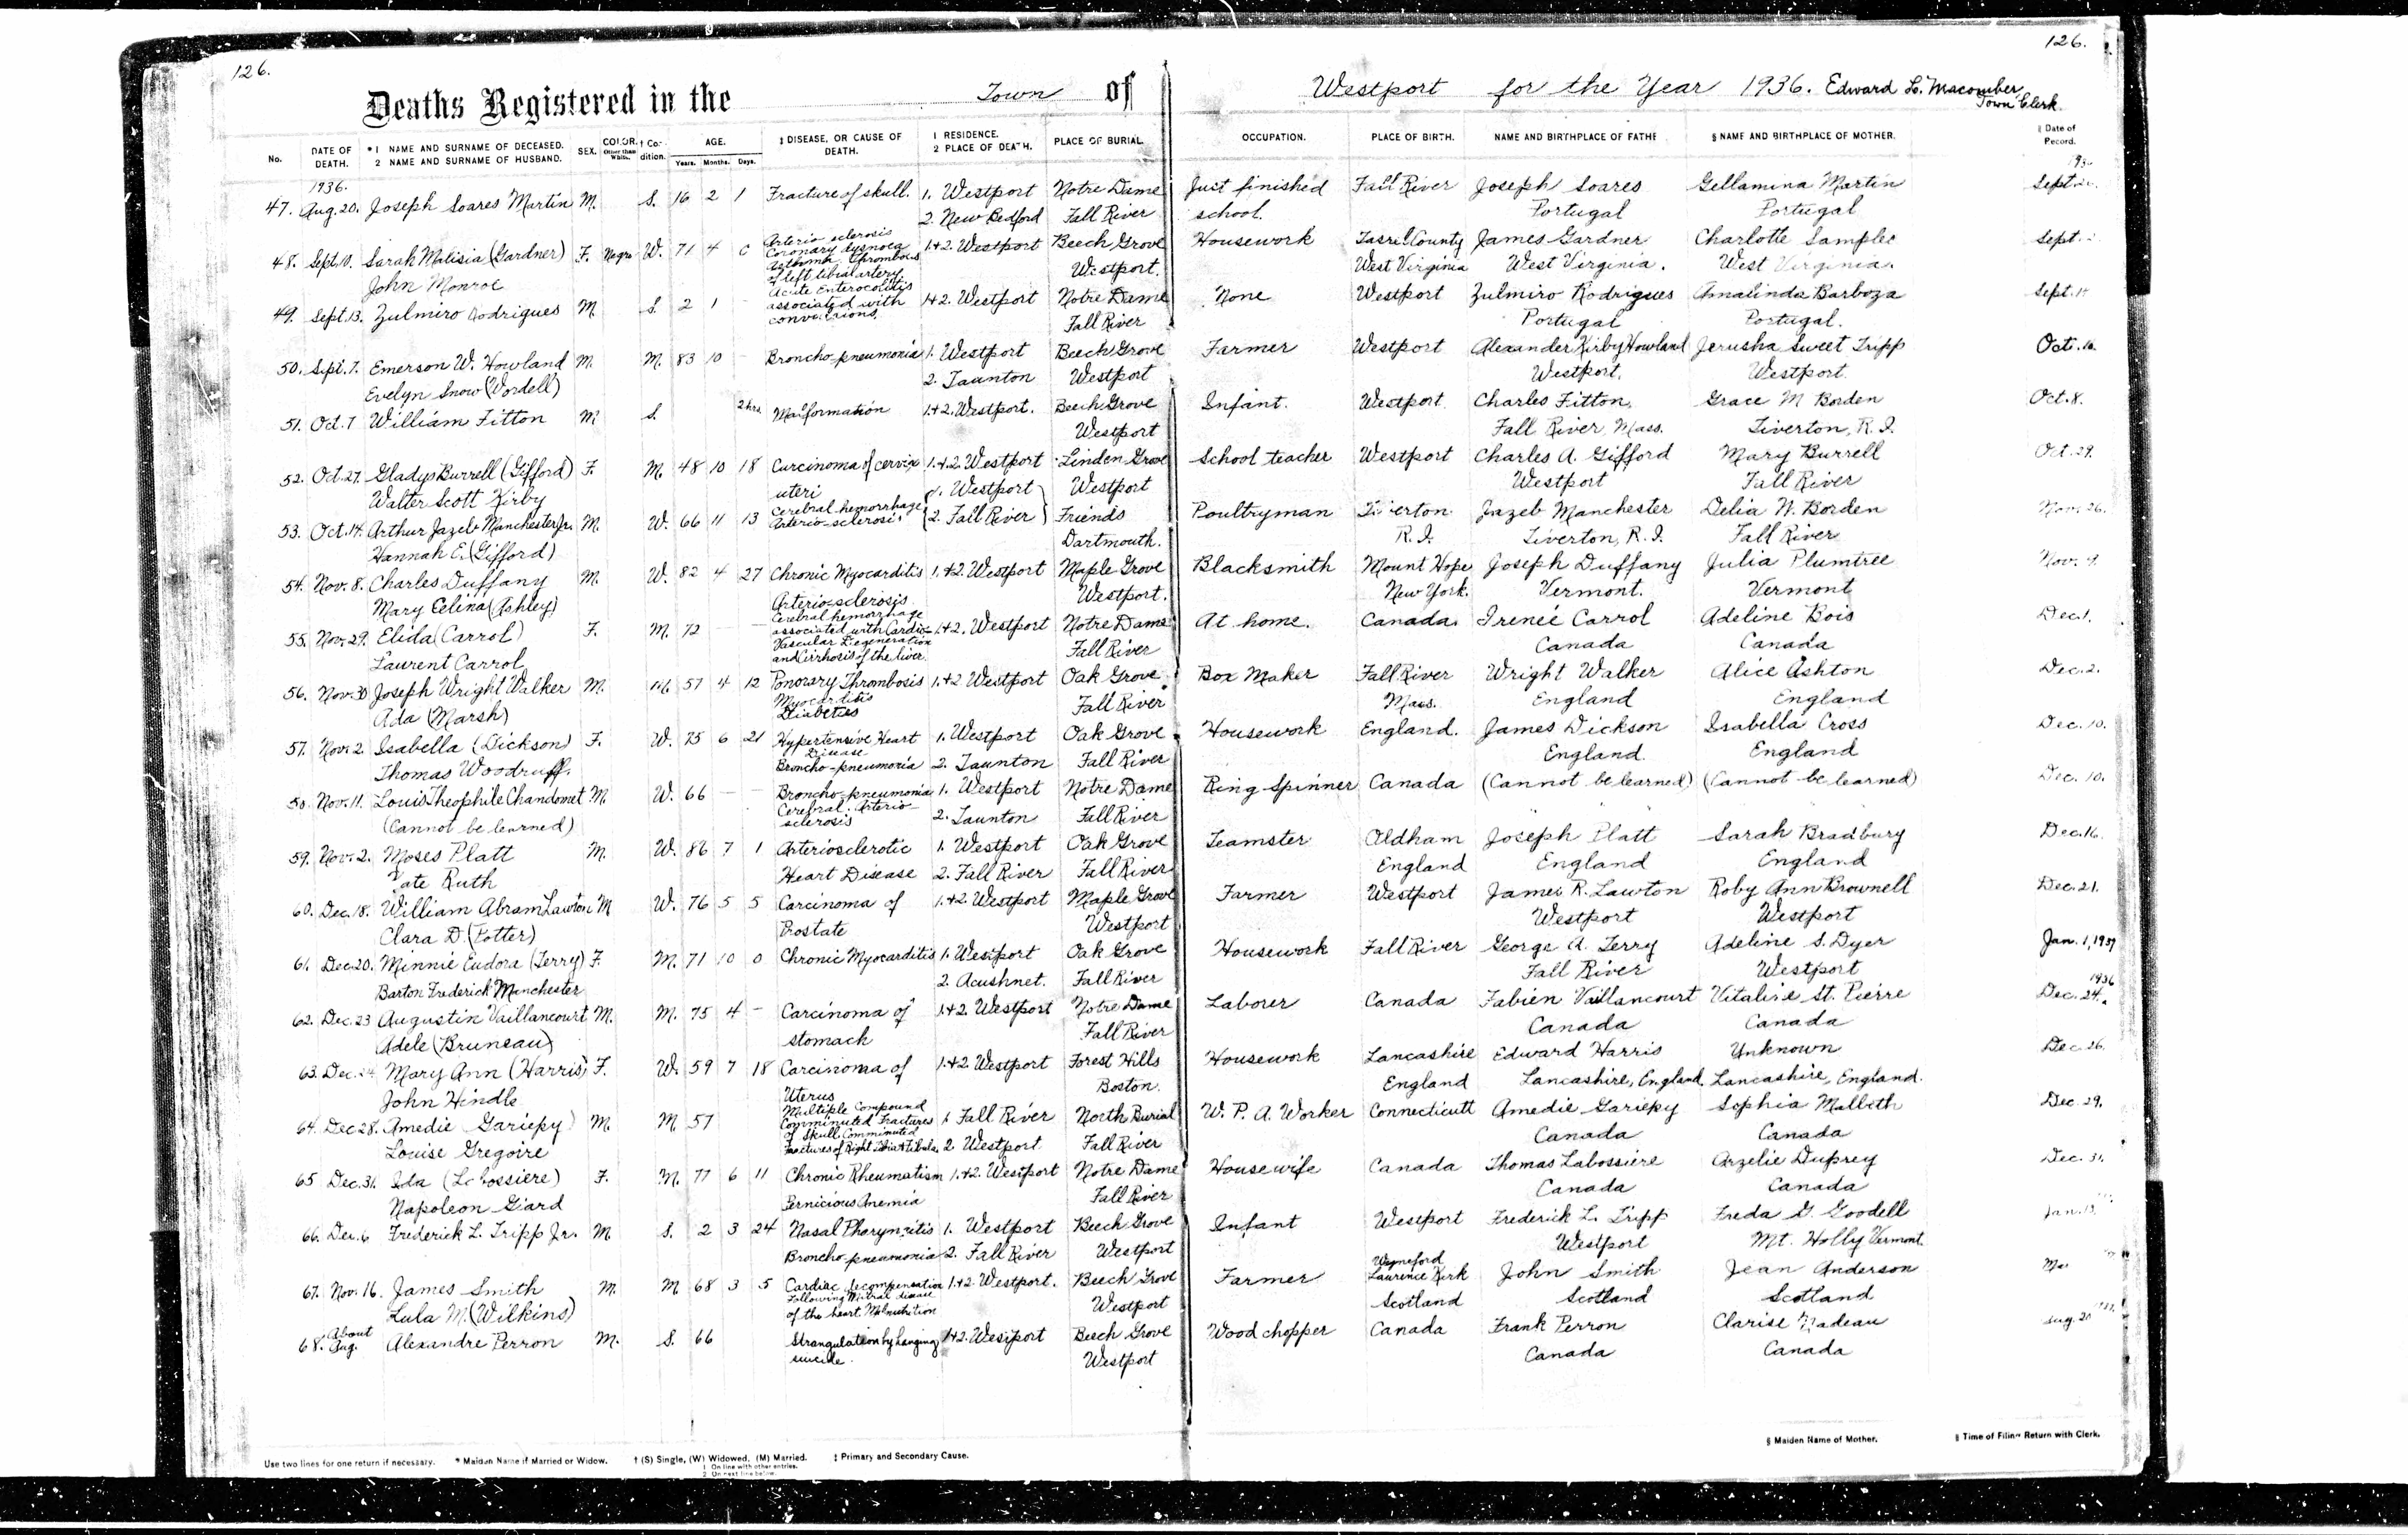 126.
126.
Deaths Registered in the Town of Westport for the Year 1936. Edward L. Macomber,
Town Clerk.
No. DATE OF DEATH. * 1 NAME AND SURNAME OF DECEASED. 2 NAME AND SURNAME OF HUSBAND. SEX. COLOR. Other than White. † Condition. AGE. Years. Months. Days. ‡ DISEASE, OR CAUSE OF DEATH. 1 RESIDENCE. 2 PLACE OF DEATH. PLACE OF BURIAL. OCCUPATION. PLACE OF BIRTH. NAME AND BIRTHPLACE OF FATHE § NAME AND BIRTHPLACE OF MOTHER. ‖ Date of Record.
1936.
47. Aug. 20. Joseph Soares Martin M. S. 16 2 1 Fracture of skull. 1. Westport Notre Dame Just finished Fall River Joseph Soares Gellamina Martin Sept.
2. New Bedford Fall River school. Portugal Portugal
48. Sept. 10. Sarah Malisia (Gardner) F. Negro W. 71 4 Arterio sclerosis Coronary dysnoea Asthma Thrombosis of left tibial artery. 1+2. Westport Beech Grove Housework County James Gardner Charlotte Samples Sept.
John Monroe Westport. West Virginia West Virginia. West Virginia.
49. Sept. 13. Zulmiro Rodrigues M. S. 2 1 - Acute Enterocolitis associated with convulsions. 1+2. Westport Notre Dame None Westport Zulmiro Rodrigues Amalinda Barboza Sept. 14
Fall River Portugal Portugal.
50. Sept. 7. Emerson W. Howland M. M. 83 10 - Broncho-pneumonia 1. Westport Beech Grove Farmer Westport Alexander Kirby Howland Jerusha Sweet Tripp Oct. 16.
Evelyn Snow (Wordell) 2. Taunton Westport Westport. Westport.
51. Oct. 7 William Fitton M S. 2 hrs. Malformation 1+2. Westport. Beech Grove Infant. Westport. Charles Fitton, Grace M Borden Oct. 8.
Westport Fall River, Mass. Tiverton, R. I.
52. Oct. 27. Gladys Burrell (Gifford) F. M. 48 10 18 Carcinoma of cervix 1.+2. Westport Linden Grove School teacher Westport Charles A. Gifford Mary Burrell Oct. 29.
Walter Scott Kirby uteri Westport Westport Fall River
53. Oct. 14. Arthur Jazeb Manchester Jr. M. W. 66 11 13 Cerebral hemorrhage Arterio-sclerosis 1. Westport 2. Fall River Friends Poultryman Tiverton Jazeb Manchester Delia N. Borden Nov. 26.
Hannah E. (Gifford) Dartmouth. R. I. Tiverton, R. I. Fall River
54. Nov. 8. Charles Duffany M. W. 82 4 27 Chronic Myocarditis 1.+2. Westport Maple Grove Blacksmith Mount Hope Joseph Duffany Julia Plumtree Nov. 9.
Mary Celina (Ashley) Arterio-sclerosis Westport. New York. Vermont. Vermont
55. Nov. 29. Elida (Carrol) F. M. 72 - - Cerebral hemorrhage associated with Cardio- Vascular Degeneration and Cirrhosis of the liver. 1.+2. Westport Notre Dame At home. Canada Ireneé Carrol Adeline Bois Dec. 1.
Laurent Carrol Fall River Canada Canada
56. Nov. 30 Joseph Wright Walker M. M. 57 4 12 Thrombosis 1.+2 Westport Oak Grove Box Maker Fall River Wright Walker Alice Ashton Dec. 2.
Ada (Marsh) Myocarditis Diabetes Fall River Mass. England England
57. Nov. 2. Isabella (Dickson) F. W. 75 6 21 Hypertensive Heart Disease 1. Westport Oak Grove Housework England. James Dickson Isabella Cross Dec. 10.
Thomas Woodruff. Broncho-pneumonia 2. Taunton Fall River England. England
58. Nov. 11. Louis Theophile Chandomet M. W. 66 - - Broncho-pneumonia 1. Westport Notre Dame Ring Spinner Canada (Cannot be learned) (Cannot be learned) Dec. 10.
(Cannot be learned) Cerebral Arterio-sclerosis 2. Taunton Fall River
59. Nov. 2. Moses Platt M. W. 86 7 1 Arteriosclerotic 1. Westport Oak Grove Teamster Oldham Joseph Platt Sarah Bradbury Dec. 16.
Ruth Heart Disease 2. Fall River Fall River England England England
60. Dec. 18. William Abram Lawton M W. 76 5 5 Carcinoma of 1.+2. Westport Maple Grove Farmer Westport James R. Lawton Roby Ann Brownell Dec. 21.
Clara D. (Potter) Prostate Westport Westport Westport
61. Dec. 20. Minnie Eudora (Terry) F. M. 71 10 0 Chronic Myocarditis 1. Westport Oak Grove Housework Fall River George A. Terry Adeline S. Dyer Jan. 1, 1937
Barton Frederick Manchester 2. Acushnet. Fall River Fall River Westport
62. Dec. 23 Augustin Vaillancourt M. M. 75 4 - Carcinoma of 1.+2. Westport Notre Dame Laborer Canada Fabien Vaillancourt Vitaline St. Pierre 1936 Dec. 24.
Adele (Bruneau) stomack Fall River Canada Canada
63. Dec. 24 Mary Ann (Harris) F. W. 59 7 18 Carcinoma of 1.+2. Westport Forest Hills Housework Lancashire Edward Harris Unknown Dec. 26.
John Hindle Uterus Boston. England Lancashire, England. Lancashire, England.
64. Dec 28. Amedie Gariepy M. M. 57 Multiple Compound Comminuted Fractures of Skull, Comminuted Fractures of Right Tibia & Fibula. 1. Fall River North Burial W. P. A. Worker Connecticutt Amedie Gariepy Sophia Malboth Dec. 29.
Louise Gregoire 2. Westport. Fall River Canada Canada
65 Dec. 31. Ida (Labossiere) F. M. 77 6 11 Chronic Rheumatism 1.+2. Westport Notre Dame Housewife Canada Thomas Labossiere Arzelie Duprey Dec. 31.
Napoleon Giard Pernicious Anemia Fall River Canada Canada
66. Dec. 6 Frederick L. Tripp Jr. M. S. 2 3 24 Nasal Pharyngitis 1. Westport Beech Grove Infant Westport Frederick L. Tripp Freda G. Goodell Jan. 13.
Broncho-pneumonia 2. Fall River Westport Westport Mt. Holly Vermont.
67. Nov. 16. James Smith M. M 68 3 5 Cardiac decompensation Following Mitral disease of the heart Malnutrition 1.+2. Westport. Beech Grove Farmer Laurence Kirk John Smith Jean Anderson
Lula M. (Wilkins) Westport Scotland Scotland Scotland
68. About Aug. Alexandre Perron M. S. 66 Strangulation by hanging 1+2. Westport Beech Grove Wood chopper Canada Frank Perron Clarise Nadeau Aug. 20
suicide. Westport Canada Canada
§ Maiden Name of Mother. ‖ Time of Filing Return with Clerk.
Use two lines for one return if necessary. * Maiden Name if Married or Widow. † (S) Single, (W) Widowed, (M) Married. ‡ Primary and Secondary Cause.
1 On line with other entries.
2 On next line below.